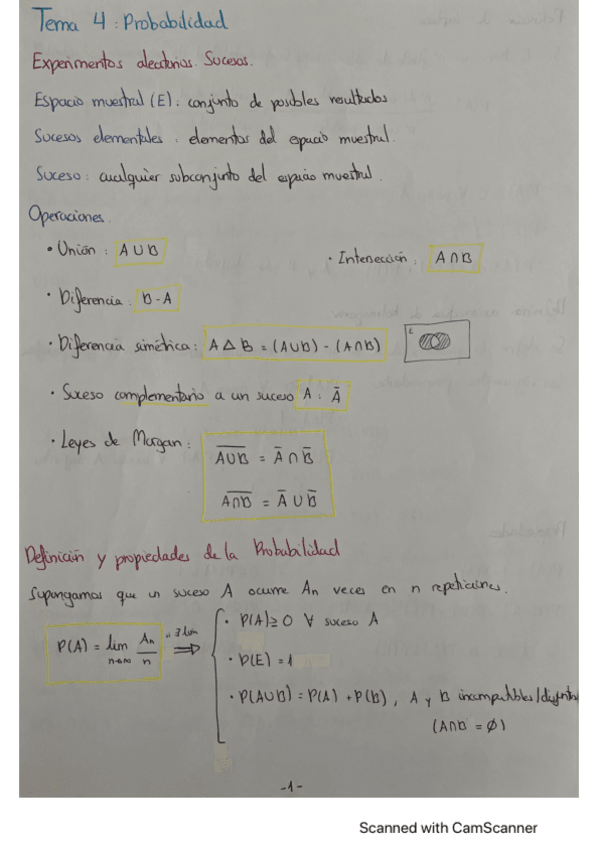 Tema 4: Probabilidad
Experimentos aleatorios. Sucesos.
Espacio muestral (E): conjunto de posibles resultados
Sucesos elementales: elementos del espacio muestral.
Suceso: cualquier subconjunto del espacio muestral.
Operaciones.
• Unión: A ∪ B • Intersección: A ∩ B
• Diferencia: B - A
• Diferencia simética: A △ B = (A∪B) - (A∩B) E
• Suceso complementario a un suceso A: Ā
• Leyes de Morgan: \overline{A∪B} = Ā ∩ B̄
\overline{A∩B} = Ā ∪ B̄
Definición y propiedades de la Probabilidad
Supongamos que un suceso A ocurre An veces en n repeticiones.
P(A) = lim n→∞ An/n ∃ lim ⇒
• P(A) ≥ 0 ∀ suceso A
• P(E) = 1
• P(A∪B) = P(A) + P(B), A y B incompatibles/disjuntos
(A∩B = ∅)
-1-
Scanned with CamScanner